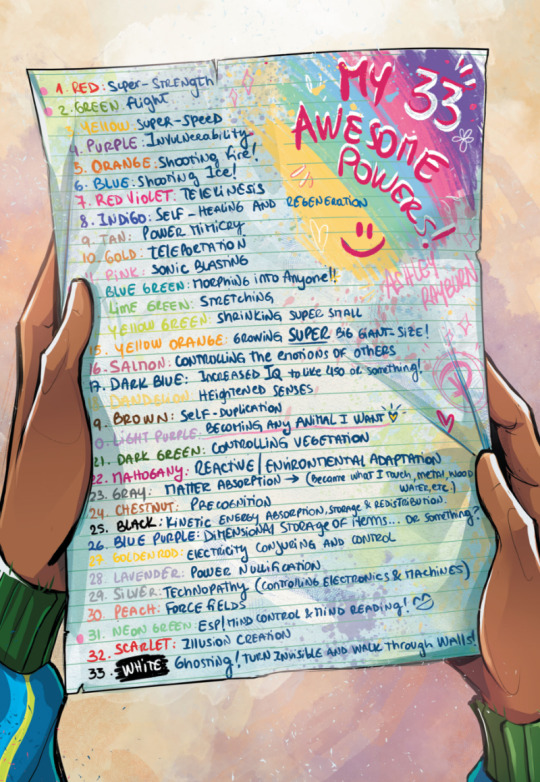 MY 33
AWESOME
POWERS!
ASHLEY
RAYBURN
1. RED: Super-Strength
2. GREEN: Flight
3. YELLOW: SUPER-SPEED
4. PURPLE: Invulnerability
5. ORANGE: Shooting Fire!
6. BLUE: Shooting Ice!
7. RED VIOLET: TELEKINESIS
8. INDIGO: SELF-HEALING AND REGENERATION
9. TAN: POWER MIMICRY
10. GOLD: TELEPORTATION
11. PINK: SONIC BLASTING
BLUE GREEN: MORPHING INTO ANYONE!!
LIME GREEN: STRETCHING
YELLOW GREEN: SHRINKING SUPER SMALL
15. YELLOW ORANGE: GROWING SUPER BIG GIANT-SIZE!
16. SALMON: CONTROLLING THE EMOTIONS OF OTHERS
17. DARK BLUE: INCREASED IQ to like 450 or something!
DANDELION: HEIGHTENED SENSES
9. BROWN: SELF-DUPLICATION
0. LIGHT PURPLE: BECOMING ANY ANIMAL I WANT
21. DARK GREEN: CONTROLLING VEGETATION
22. MAHOGANY: REACTIVE/ENVIRONMENTAL ADAPTATION
23. GRAY: MATTER ABSORPTION → (Become what I touch, METAL, WOOD
WATER, ETC.)
24. CHESTNUT: PRECOGNITION
25. BLACK: KINETIC ENERGY ABSORPTION, STORAGE & REDISTRIBUTION.
26. BLUE PURPLE: DIMENSIONAL STORAGE OF ITEMS... OR SOMETHING?
27. GOLDENROD: ELECTRICITY CONJURING AND CONTROL
28. LAVENDER: POWER NULLIFICATION
29. SILVER: TECHNOPATHY (CONTROLLING ELECTRONICS & MACHINES)
30. PEACH: FORCE FIELDS
31. NEON GREEN: ESP/MIND CONTROL & MIND READING!
32. SCARLET: ILLUSION CREATION
33. WHITE Ghosting! TURN INVISIBLE AND WALK through WALLS!